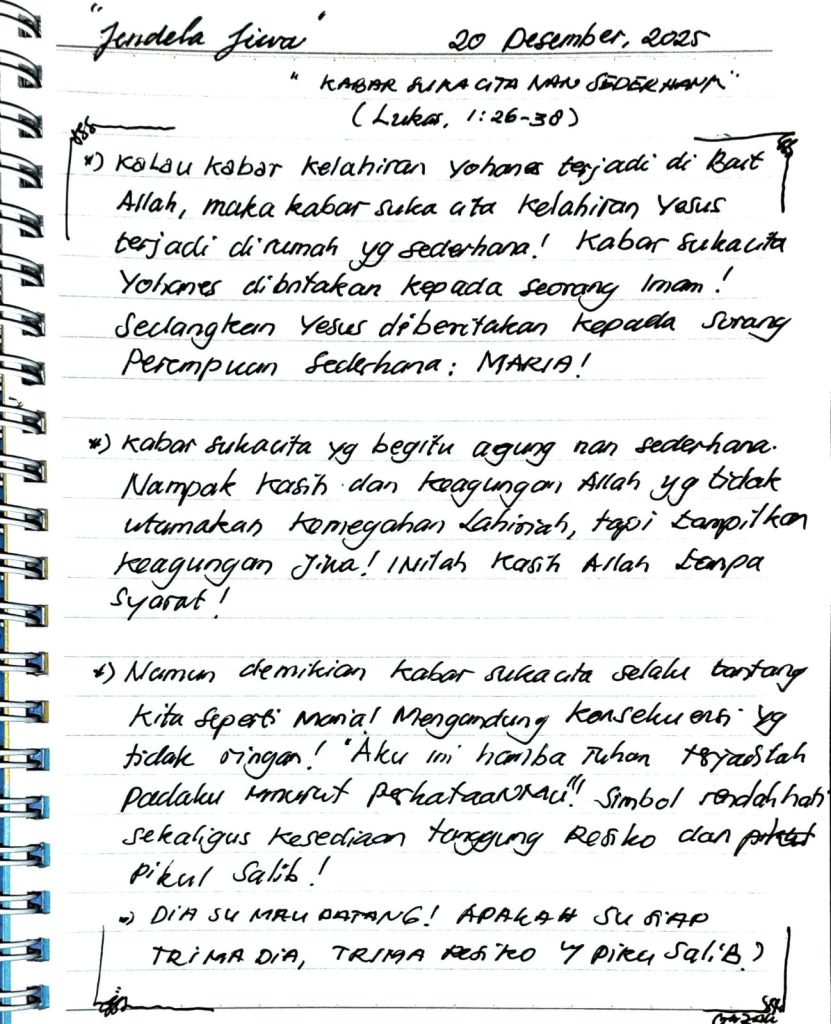 "Jendela Jiwa" 20 Desember, 2025
"KABAR SUKACITA NAN SEDERHANA"
(Lukas, 1:26-38)
*) Kalau kabar kelahiran Yohanes terjadi di Bait
Allah, maka kabar suka cita kelahiran Yesus
terjadi dirumah yg sederhana! Kabar sukacita
Yohanes dibritakan kepada seorang Imam!
Sedangkan Yesus diberitakan kepada surang
Perempuan Sederhana: MARIA!
*) Kabar sukacita yg begitu agung nan sederhana.
Nampak Kasih dan Keagungan Allah yg tidak
utamakan Kemegahan Lahiriah, tapi tampilkan
Keagungan Jiwa! Inilah Kasih Allah tanpa
Syarat!
*) Namun demikian kabar sukacita selalu tantang
Kita seperti Maria! Mengandung Konsekuensi yg
tidak ringan! "Aku ini hamba Tuhan terjadilah
Padaku menurut PerkataanMu"! Simbol rendah hati
sekaligus Kesediaan tanggung Resiko dan
Pikul Salib!
=) DIA SU MAU DATANG! APAKAH SU SIAP
TRIMA DIA, TRIMA Resiko Y Piku SaliB?